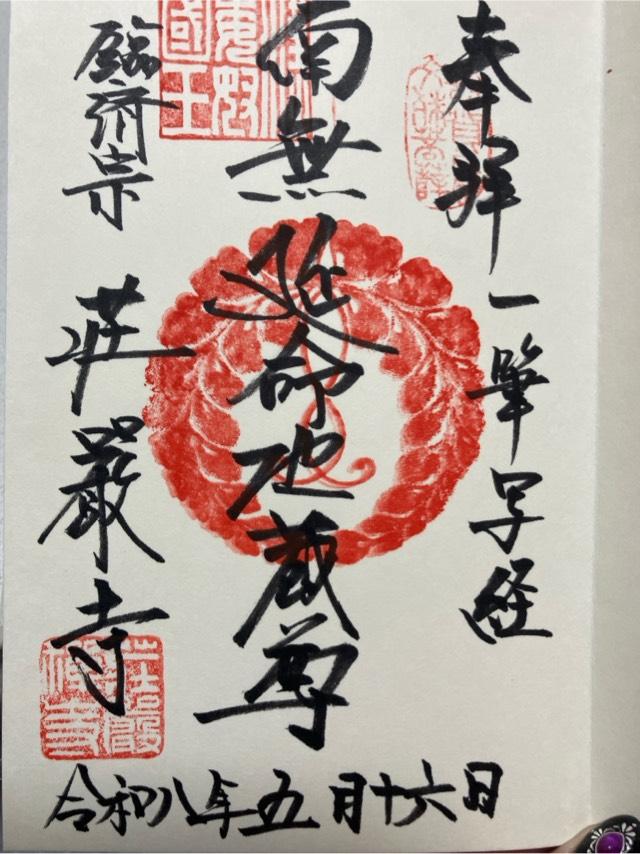 奉拝 一筆写経
南無延命地蔵尊
臨済宗 荘厳寺
令和八年五月十六日